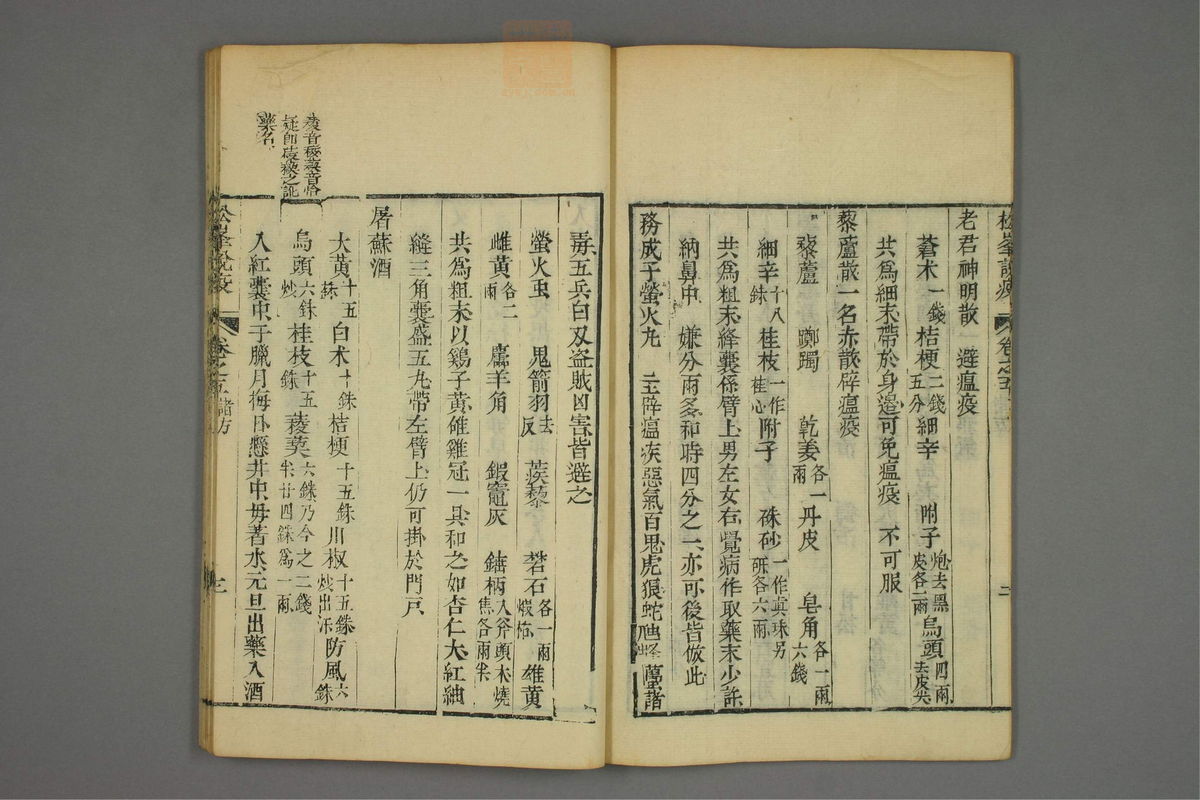 松峯說疫
卷之五
二
老君神明散 避瘟疫
蒼朮一錢桔梗二錢五分細辛 附子炮去黑皮各二兩烏頭四兩去皮尖
共為細末帶於身邊可免瘟疫 不可服
藜蘆散一名赤散辟瘟疫
藜蘆 躑躅 乾姜各一兩丹皮 皂角各一兩六錢
細辛十八銖桂枝一作桂心附子 硃砂一作眞珠另研各六兩
共為粗末絳囊係臂上男左女右覺病作取藥末少許
納鼻中 嫌分兩多和時四分之一亦可後皆倣此
務成子螢火丸 主辟瘟疾惡氣百鬼虎狼蛇虺蜂蠆諸
毒五兵白刃盜賊凶害皆避之
螢火虫 鬼箭羽去皮 蒺藜 礬石各一兩煅枯 雄黃
雌黃各二兩 羖羊角 鍛竈灰 鎚柄入斧頭木燒焦各兩半
共為粗末以鷄子黃雄雞冠一具和之如杏仁大紅紬
縫三角囊盛五丸帶左臂上仍可掛於門戶
屠蘇酒
大黃十五銖白朮十銖桔梗十五銖川椒十五銖炒出汗防風六銖
烏頭六銖炒桂枝十五銖菝葜六銖乃今之二錢半廿四銖為一兩
入紅囊中于臘月晦日懸井中毋著水元旦出藥入酒
菝音
疑即
藥名
松峯說疫
卷之五諸方
三